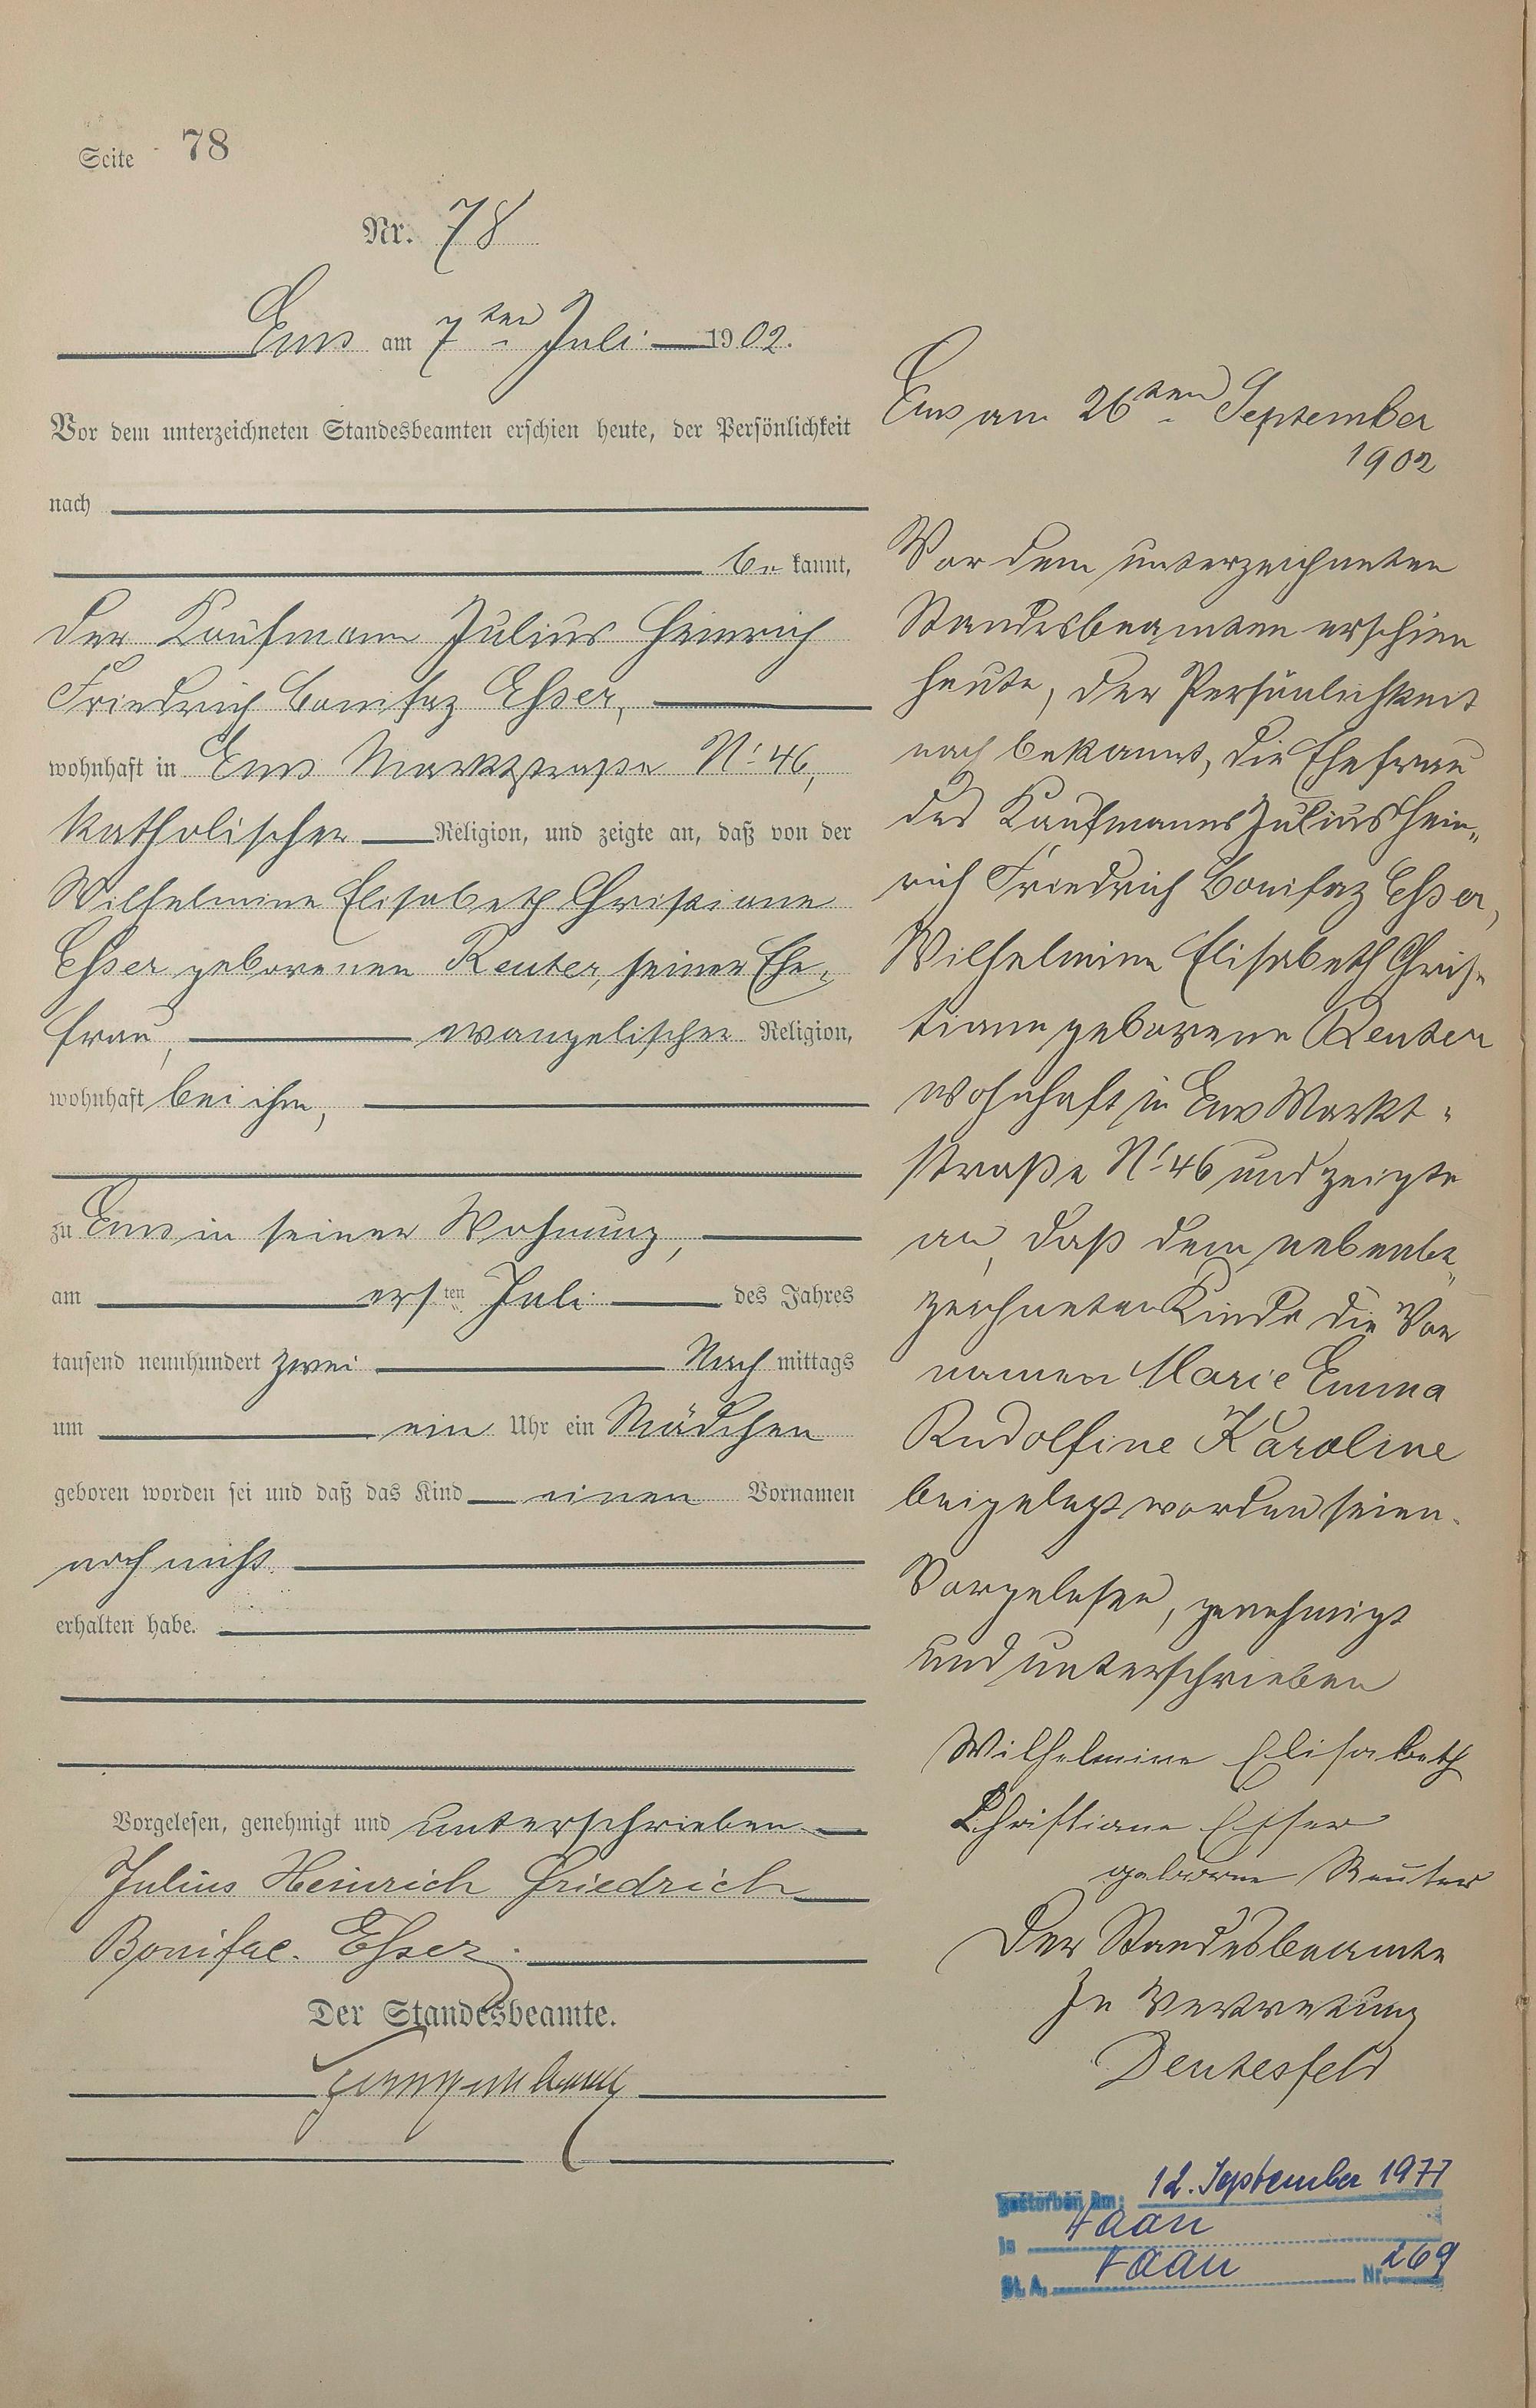 Seite 78
Nr. 78
Ems am 7ten Juli 1902.
Vor dem unterzeichneten Standesbeamten erschien heute, der Persönlichkeit
nach
be kannt,
der Kaufmann Julius Heinrich
Friedrich Bonifaz Esser,
wohnhaft in Ems Marktstraße No 46,
katholischer Religion, und zeigte an, daß von der
Wilhelmine Elisabeth Christiane
Esser geborenen Reuter, seiner Ehe-
frau, evangelischer Religion,
wohnhaft bei ihm,
zu Ems in seiner Wohnung,
am ersten Juli des Jahres
tausend neunhundert zwei Nach mittags
um ein Uhr ein Mädchen
geboren worden sei und daß das Kind einen Vornamen
noch nicht
erhalten habe.
Vorgelesen, genehmigt und unterschrieben
Julius Heinrich Friedrich
Bonifac. Esser.
Der Standesbeamte.
Ems am 26ten September
1902
Vor dem unterzeichneten
Standesbeamten erschien
heute, der Persönlichkeit
nach bekannt, die Ehefrau
des Kaufmanns Julius Hein-
rich Friedrich Bonifaz Esser,
Wilhelmine Elisabeth Chris-
tiane geborene Reuter
wohnhaft in Ems Markt-
straße No 46 und zeigte
an, daß dem nebenbe-
zeichneten Kinde die Vor
namen Marie Emma
Rudolfine Karoline
beigelegt worden seien.
Vorgelesen, genehmigt
und unterschrieben
Wilhelmine Elisabeth
Christiane Esser
geborne Reuter
Der Standesbeamte
In Vertretung
Deutesfeld
gestorben am: 12. September 1977
in Haan
St. A. Haan Nr. 269